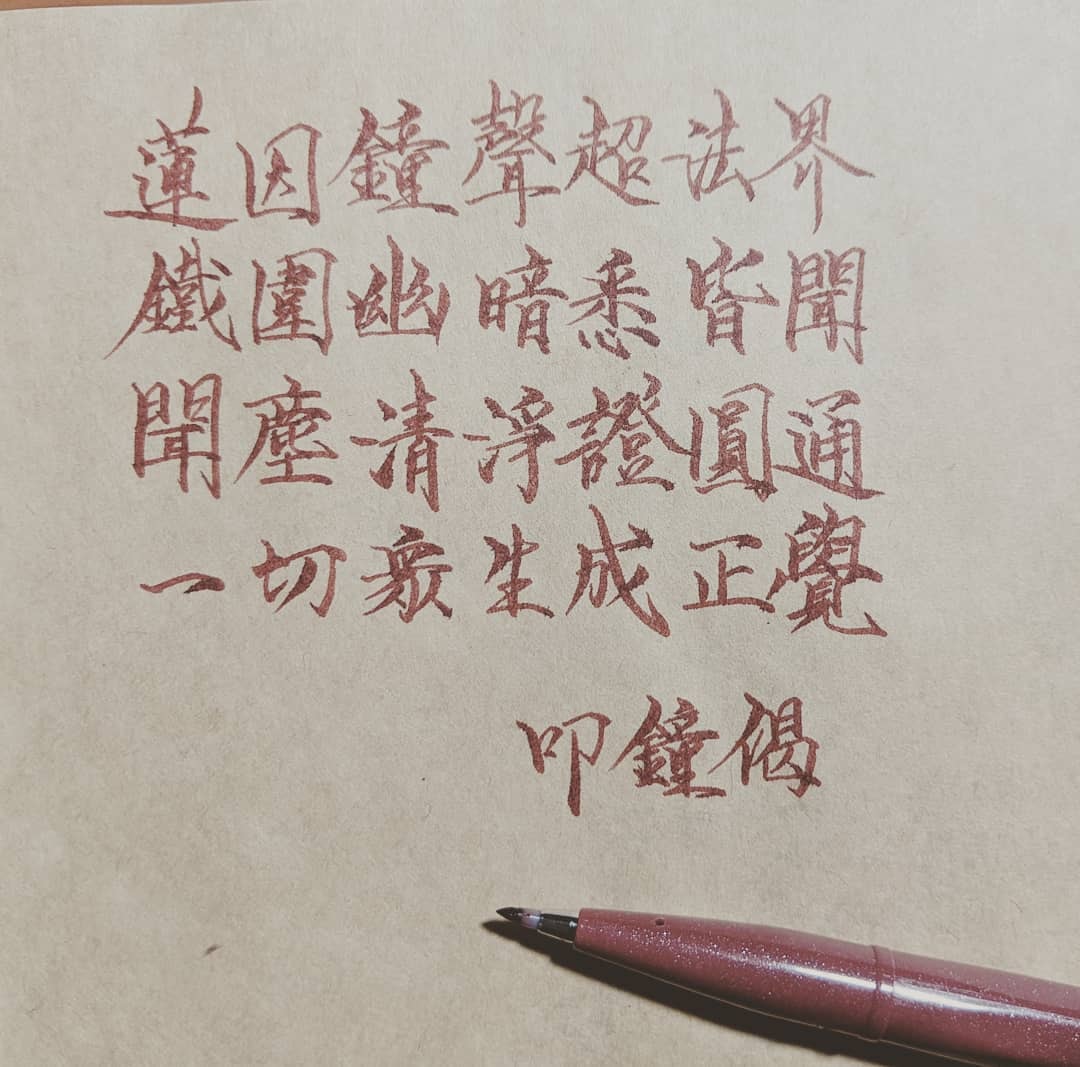 蓮因鐘聲超法界
鐵圍幽暗悉皆聞
聞塵清淨證圓通
一切衆生成正覺
叩鐘偈